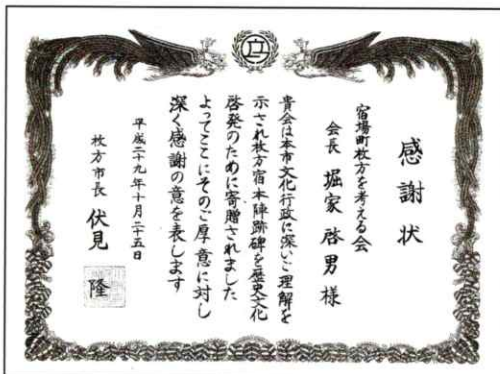 感謝状
宿場町枚方を考える会
会長 堀家啓男様
貴会は本市文化行政に深いご理解を
示され枚方宿本陣跡碑を歴史文化
啓発のために寄贈されました
よってここにそのご厚意に対し
深く感謝の意を表します
平成二十九年十月二十五日
枚方市長 伏見 隆